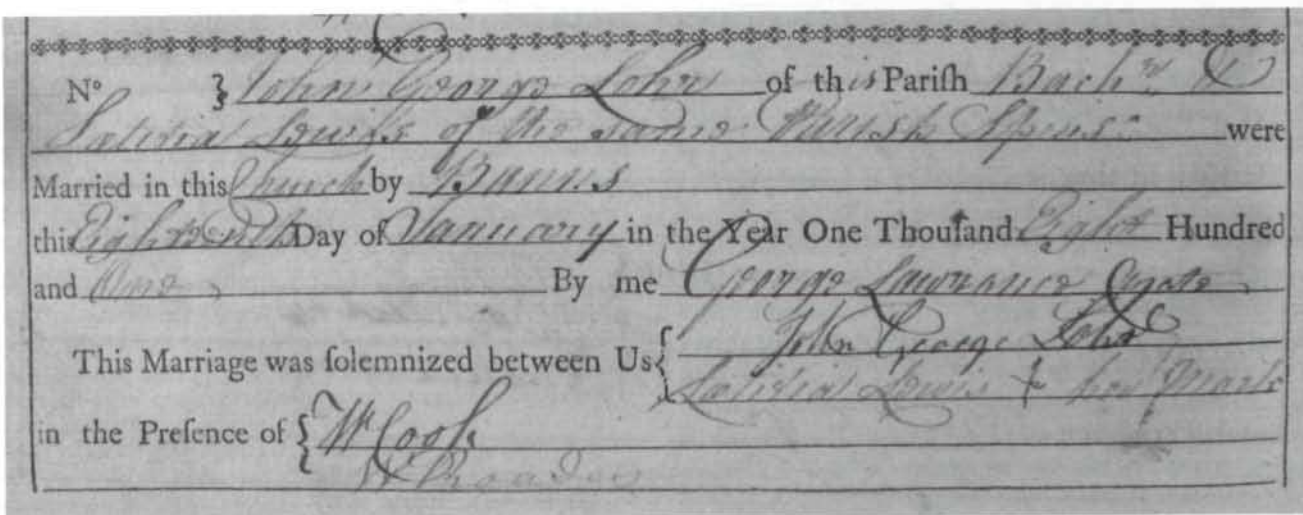 N° } John George Lohr of this Pariſh Bachr. &
Latitia Lewis of the same Parish Spinsr. were
Married in this Church by Banns
this Eighteenth Day of January in the Year One Thouſand Eight Hundred
and One By me George Lawrance Curate
This Marriage was ſolemnized between Us { John George Lohr
Latitia Lewis + her Mark
in the Preſence of { Wm Cook